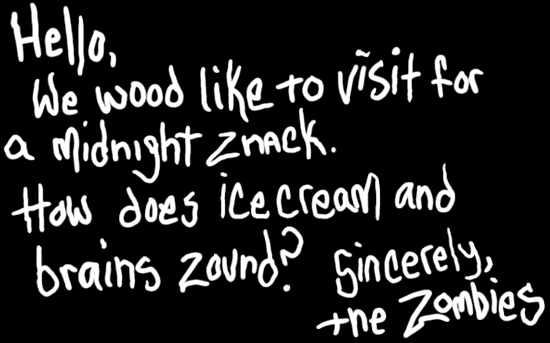 Hello,
We wood like to visit for
a midnight znack.
How does ice cream and
brains zound? Sincerely,
the Zombies